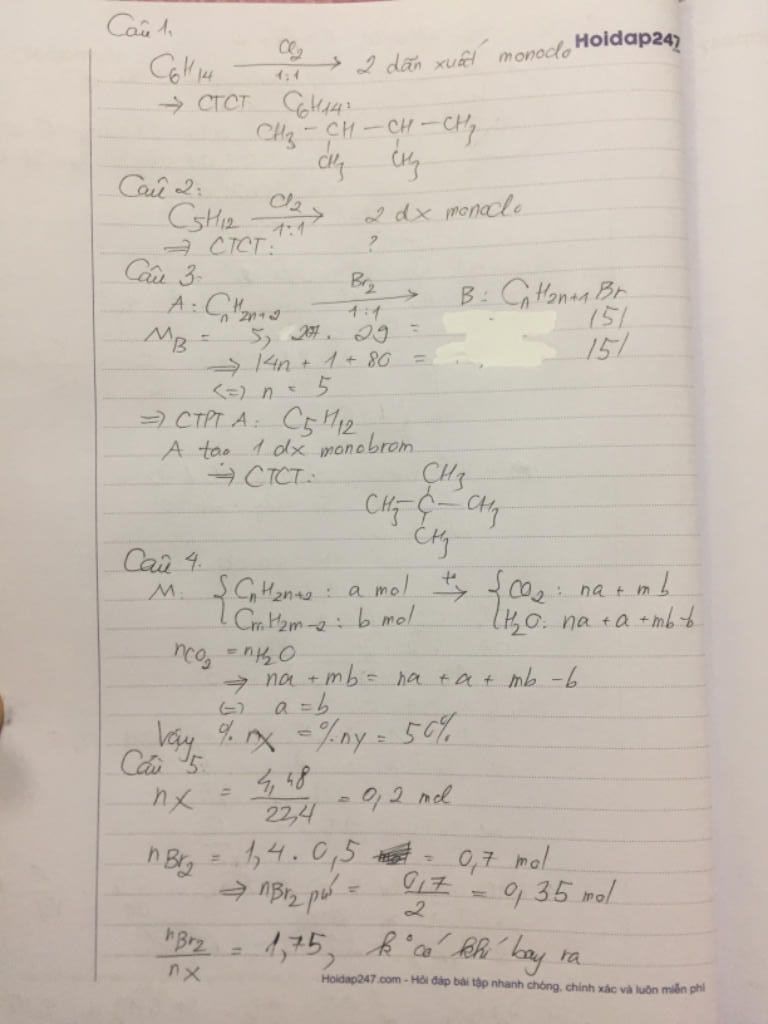 Câu 1.
Hoidap247
C₆H₁₄ Cl₂ 1:1 → 2 dẫn xuất monoclo
⇒ CTCT C₆H₁₄:
CH₃ – CH – CH – CH₃
CH₃ CH₃
Câu 2:
C₅H₁₂ Cl₂ 1:1 → 2 dx monoclo
⇒ CTCT: ?
Câu 3.
A: CₙH₂ₙ₊₂ Br₂ 1:1 → B: CₙH₂ₙ₊₁Br
M_B = 5, 207. 29 = 151
⇒ 14n + 1 + 80 = 151
⇔ n = 5
⇒ CTPT A: C₅H₁₂
A tạo 1 dx monobrom
⇒ CTCT:
CH₃
CH₃ – C – CH₃
CH₃
Câu 4.
M: { CₙH₂ₙ₊₂ : a mol t° → { CO₂ : na + mb
CₘH₂ₘ₋₂ : b mol H₂O: na + a + mb-b
nCO₂ = nH₂O
⇒ na + mb = na + a + mb - b
⇔ a = b
Vậy % nX = % nY = 50%
Câu 5.
nX = 4,48 / 22,4 = 0,2 mol
nBr₂ = 1,4 . 0,5 = 0,7 mol
⇒ nBr₂ pứ = 0,7 / 2 = 0,35 mol
nBr₂ / nX = 1,75, k° có khí bay ra
Hoidap247.com - Hỏi đáp bài tập nhanh chóng, chính xác và luôn miễn phí